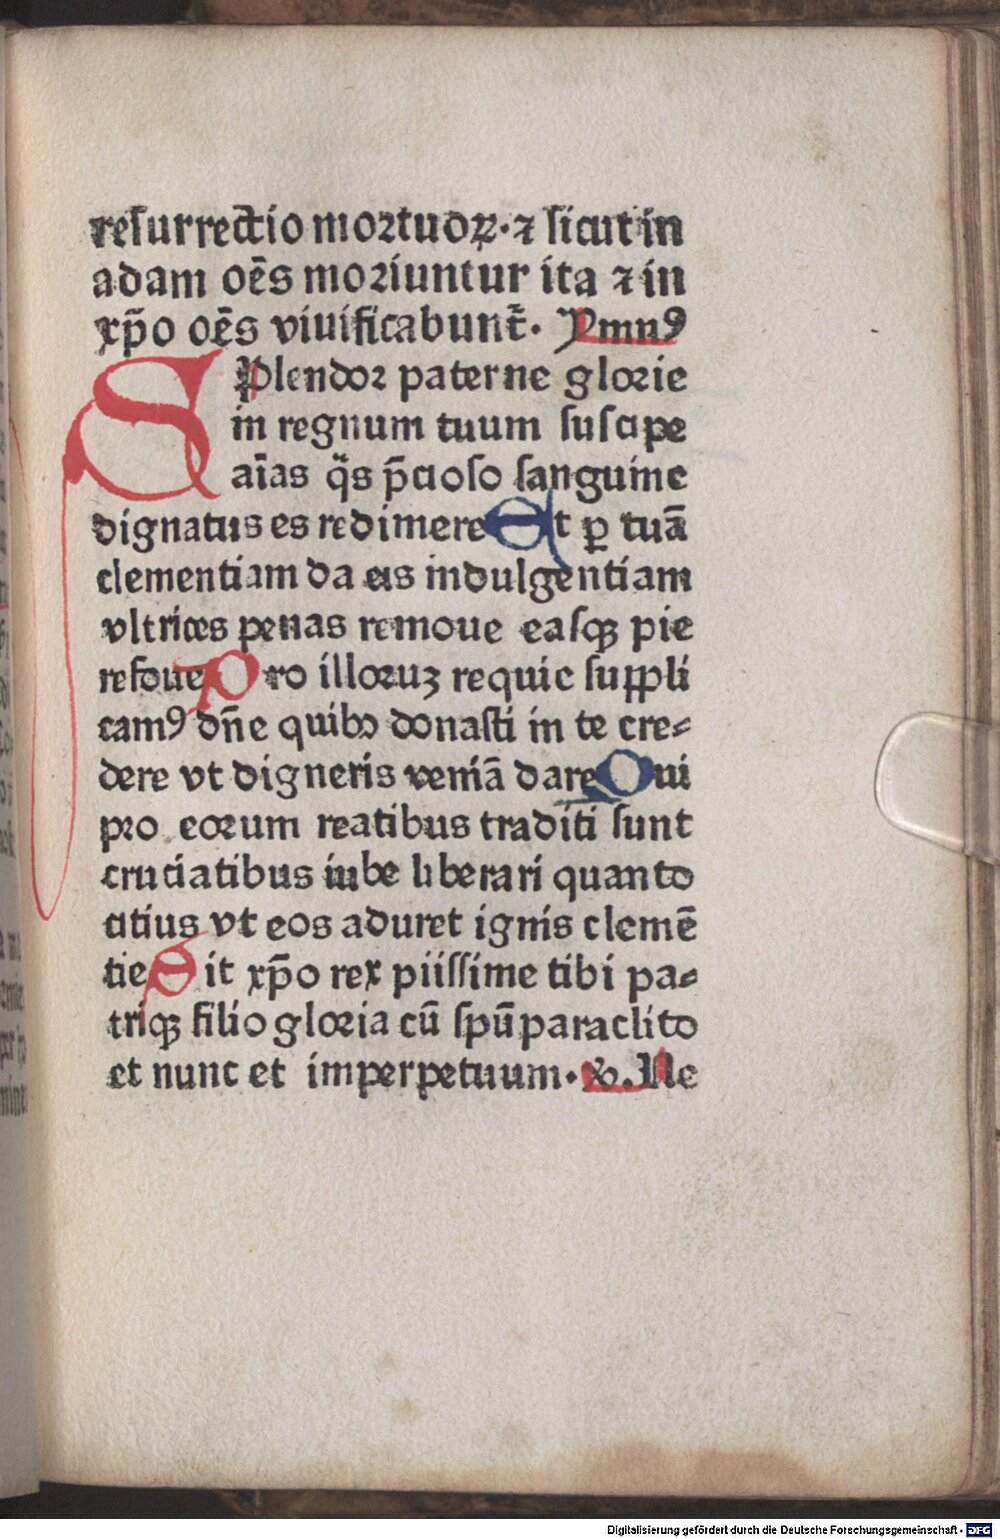 resurrectio mortuoꝝ· ⁊ sicut in
adam oēs moriuntur ita ⁊ in
xp̄o oēs viuificabunt̄· Ymnꝰ
Splendor paterne glorie
in regnum tuum suscipe
aīas q̄s p̄cioso sanguine
dignatus es redimere Et ꝑ tuā
clementiam da eis indulgentiam
vltrices penas remoue easqꝫ pie
refoue Pro illoruꝫ requie suppli
camꝰ dn̄e quibꝫ donasti in te cre⸗
dere vt digneris veniā dare Qui
pro eorum reatibus traditi sunt
cruciatibus iube liberari quanto
citius vt eos aduret ignis clemē
tie Sit xp̄o rex piissime tibi pa⸗
triqꝫ filio gloria cū spū paraclito
et nunc et imperpetuum· ꝟ. Ne
Digitalisierung gefördert durch die Deutsche Forschungsgemeinschaft - DFG